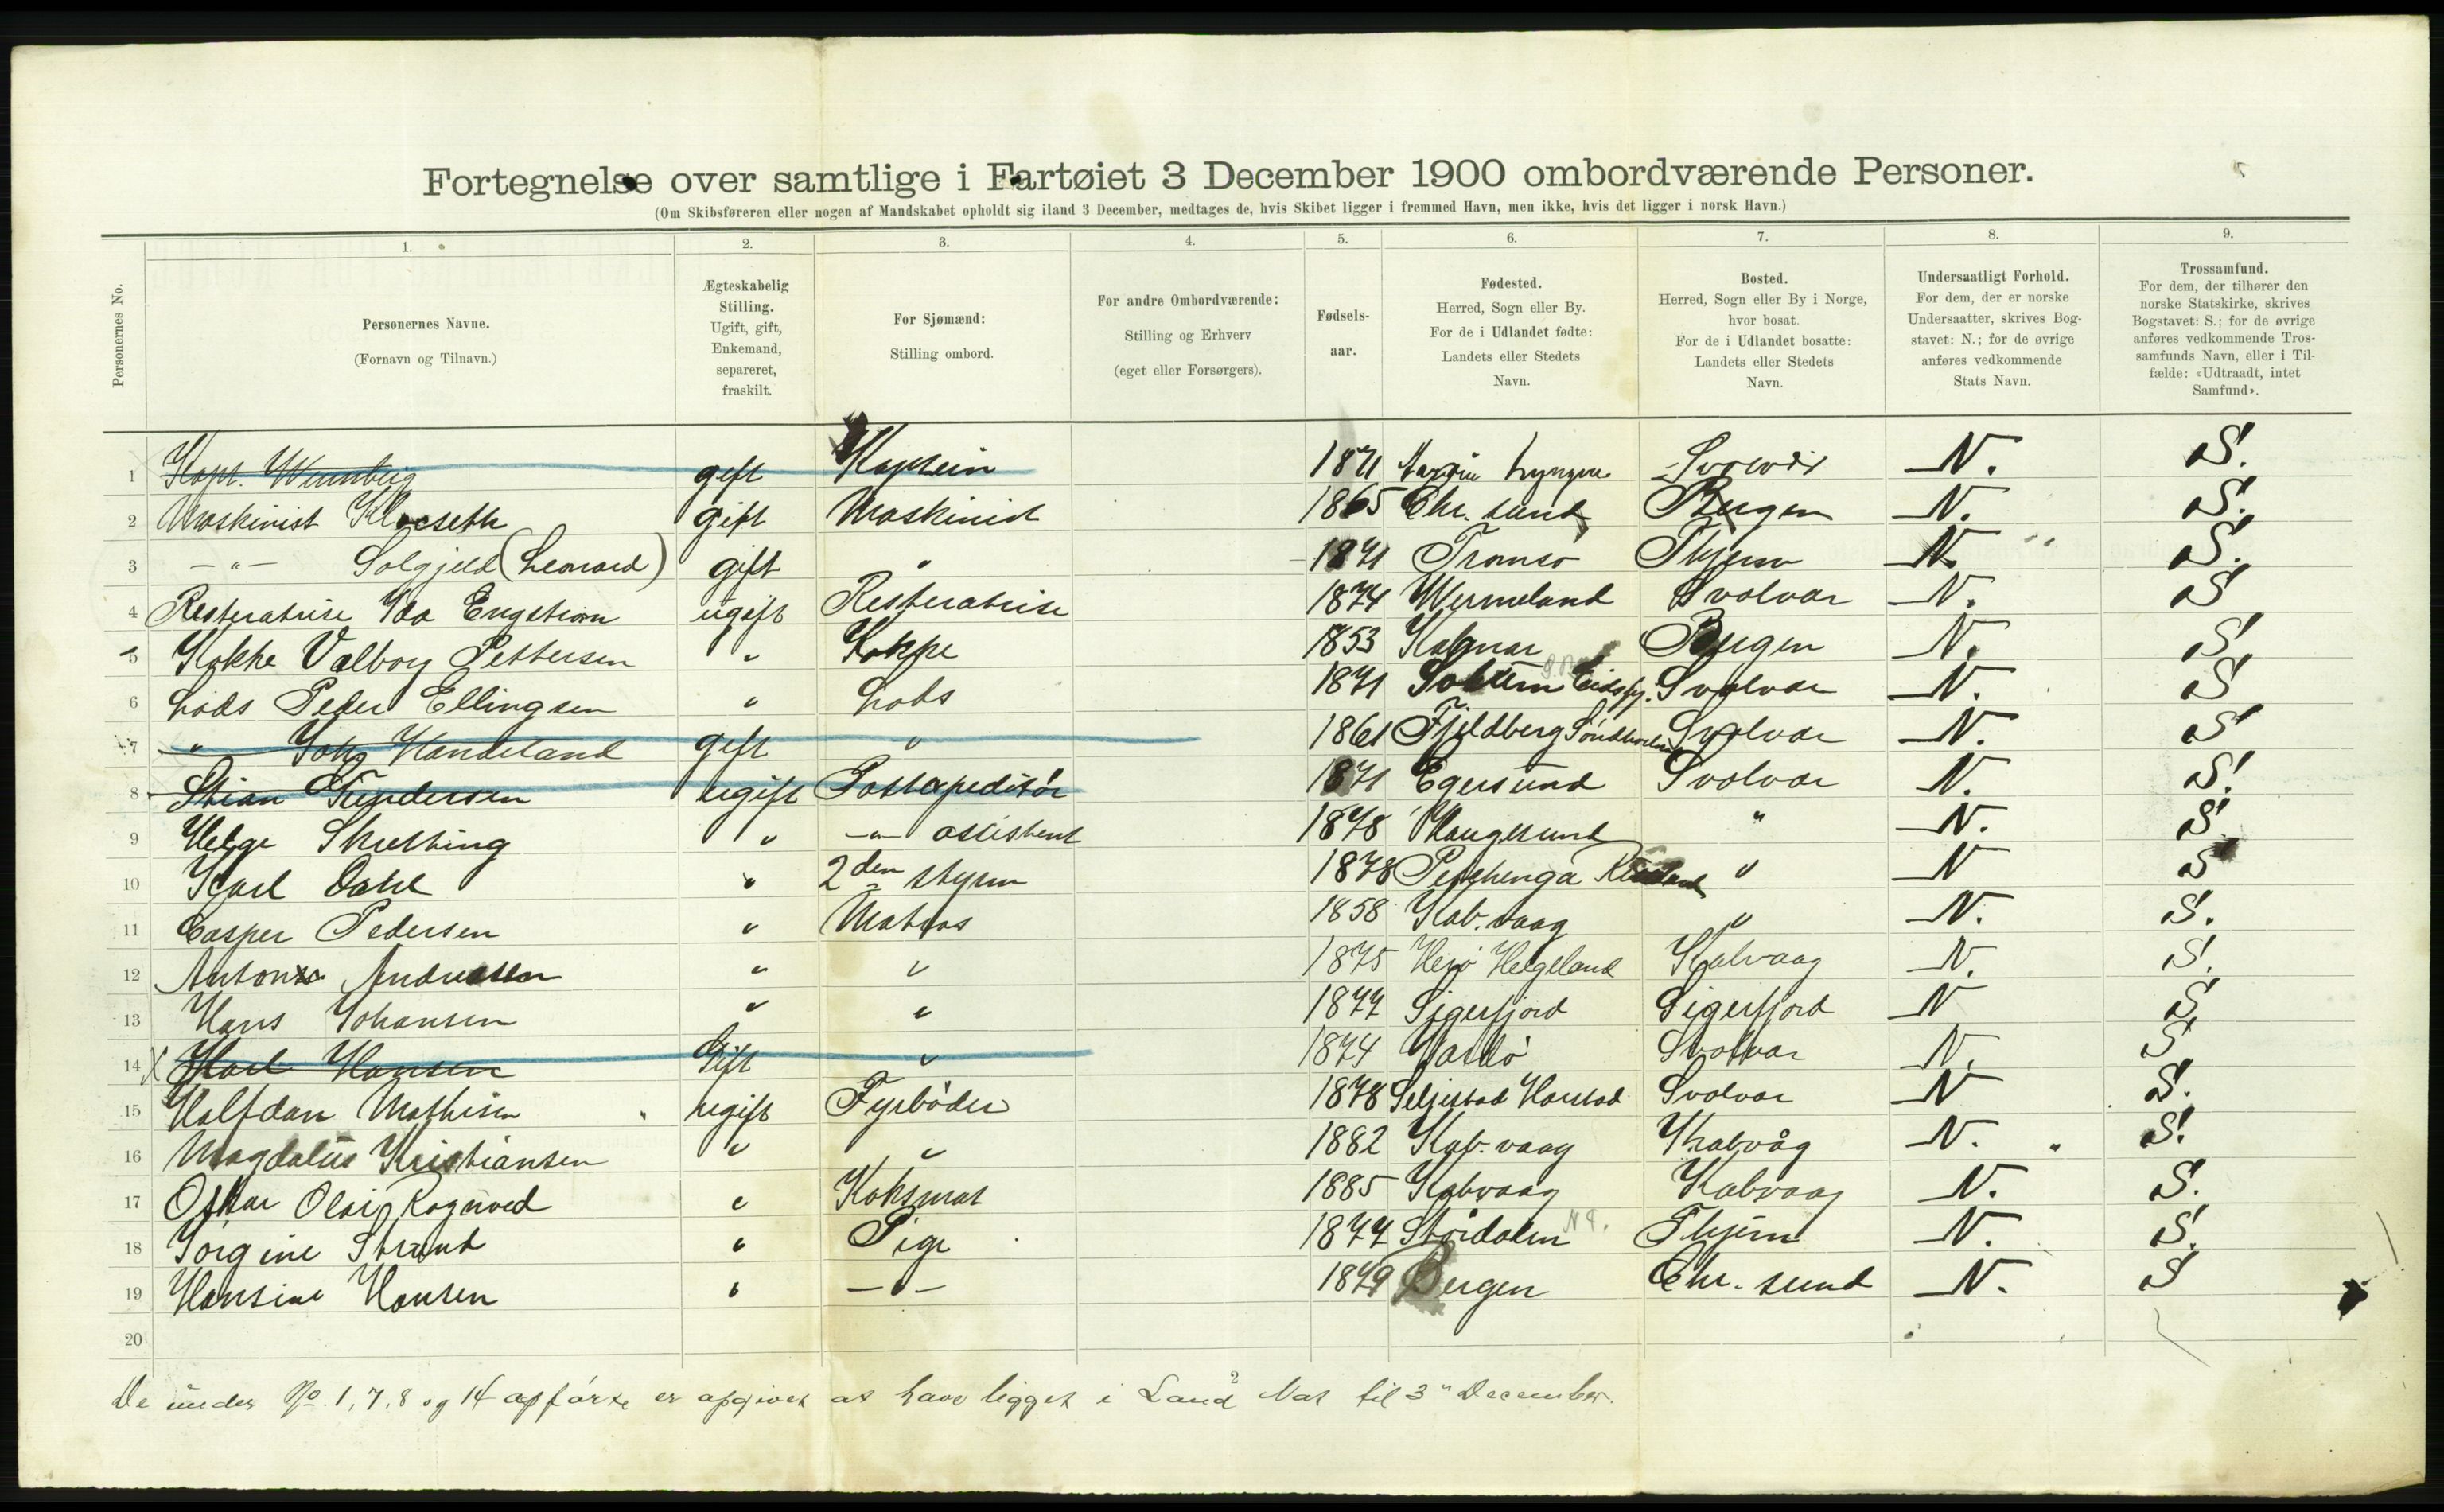 Fortegnelse over samtlige i Fartøiet 3 December 1900 ombordværende Personer.
(Om Skibsføreren eller nogen af Mandskabet opholdt sig iland 3 December, medtages de, hvis Skibet ligger i fremmed Havn, men ikke, hvis det ligger i norsk Havn.)
Personernes No.
1. 2. 3. 4. 5. 6. 7. 8. 9.
Personernes Navne.
(Fornavn og Tilnavn.)
Ægteskabelig
Stilling.
Ugift, gift,
Enkemand,
separeret,
fraskilt.
For Sjømænd:
Stilling ombord.
For andre Ombordværende:
Stilling og Erhverv
(eget eller Forsørgers).
Fødsels-
aar.
Fødested.
Herred, Sogn eller By.
For de i Udlandet fødte:
Landets eller Stedets
Navn.
Bosted.
Herred, Sogn eller By i Norge,
hvor bosat.
For de i Udlandet bosatte:
Landets eller Stedets
Navn.
Undersaatligt Forhold.
For dem, der er norske
Undersaatter, skrives Bog-
stavet: N.; for de øvrige
anføres vedkommende
Stats Navn.
Trossamfund.
For dem, der tilhører den
norske Statskirke, skrives
Bogstavet: S.; for de øvrige
anføres vedkommende Tros-
samfunds Navn, eller i Til-
fælde: «Udtraadt, intet
Samfund».
1 Kapt. gift Kaptein 1871 N. S.
2 Maskinist gift Maskinist 1865 Chr. sund Bergen N. S.
3 — " — Solgjeld (Leonard) gift " 1871 Tromsö Thjem N. S.
4 Restoratrise Ida Engström ugift Restoratrise 1874 Wermeland Svolvær N. S
5 Kokke Valborg Pettersen " Kokke 1853 Kalmar Bergen N. S
6 Lods Peder Ellingsen " Lods 1871 Svolvær N. S
7 " Handeland gift " 1861 Fjeldberg Söndhorland Svolvær N. S
8 Stian Gundersen ugift Postexpeditör 1871 Egersund Svolvær N. S.
9 Helge Skretting " —"— assistent 1878 Haugesund " N. S
10 Karl Dahl " 2den styrm 1878 Petchenga Rusland " N S
11 Casper Pedersen " Matros 1858 Kab.vaag " N. S.
12 Anton Andreassen " " 1875 Herö Helgeland Kalvaag N. S.
13 Hans Johansen " " 1877 Sigerfjord Sigerfjord N S
14 X Karl Hansen Gift " 1874 Vardö Svolvær N. S
15 Halfdan Mathisen ugift Fyrböder 1878 Seljestad Harstad Svolvær N S.
16 Magdalus Kristiansen " " 1882 Kab.vaag Kabvåg N. S.
17 Oskar Olai Ragnvod " Koksmat 1885 Kabvaag Kabvaag N. S.
18 Jörgine Strand " Pige 1877 Stördalen N T. Thjem N. S.
19 Hansine Hansen " — " — 1879 Bergen Chr. sund N. S
20
De under No. 1, 7, 8 og 14 opførte er opgivet at have ligget i Land Nat til 3" December.